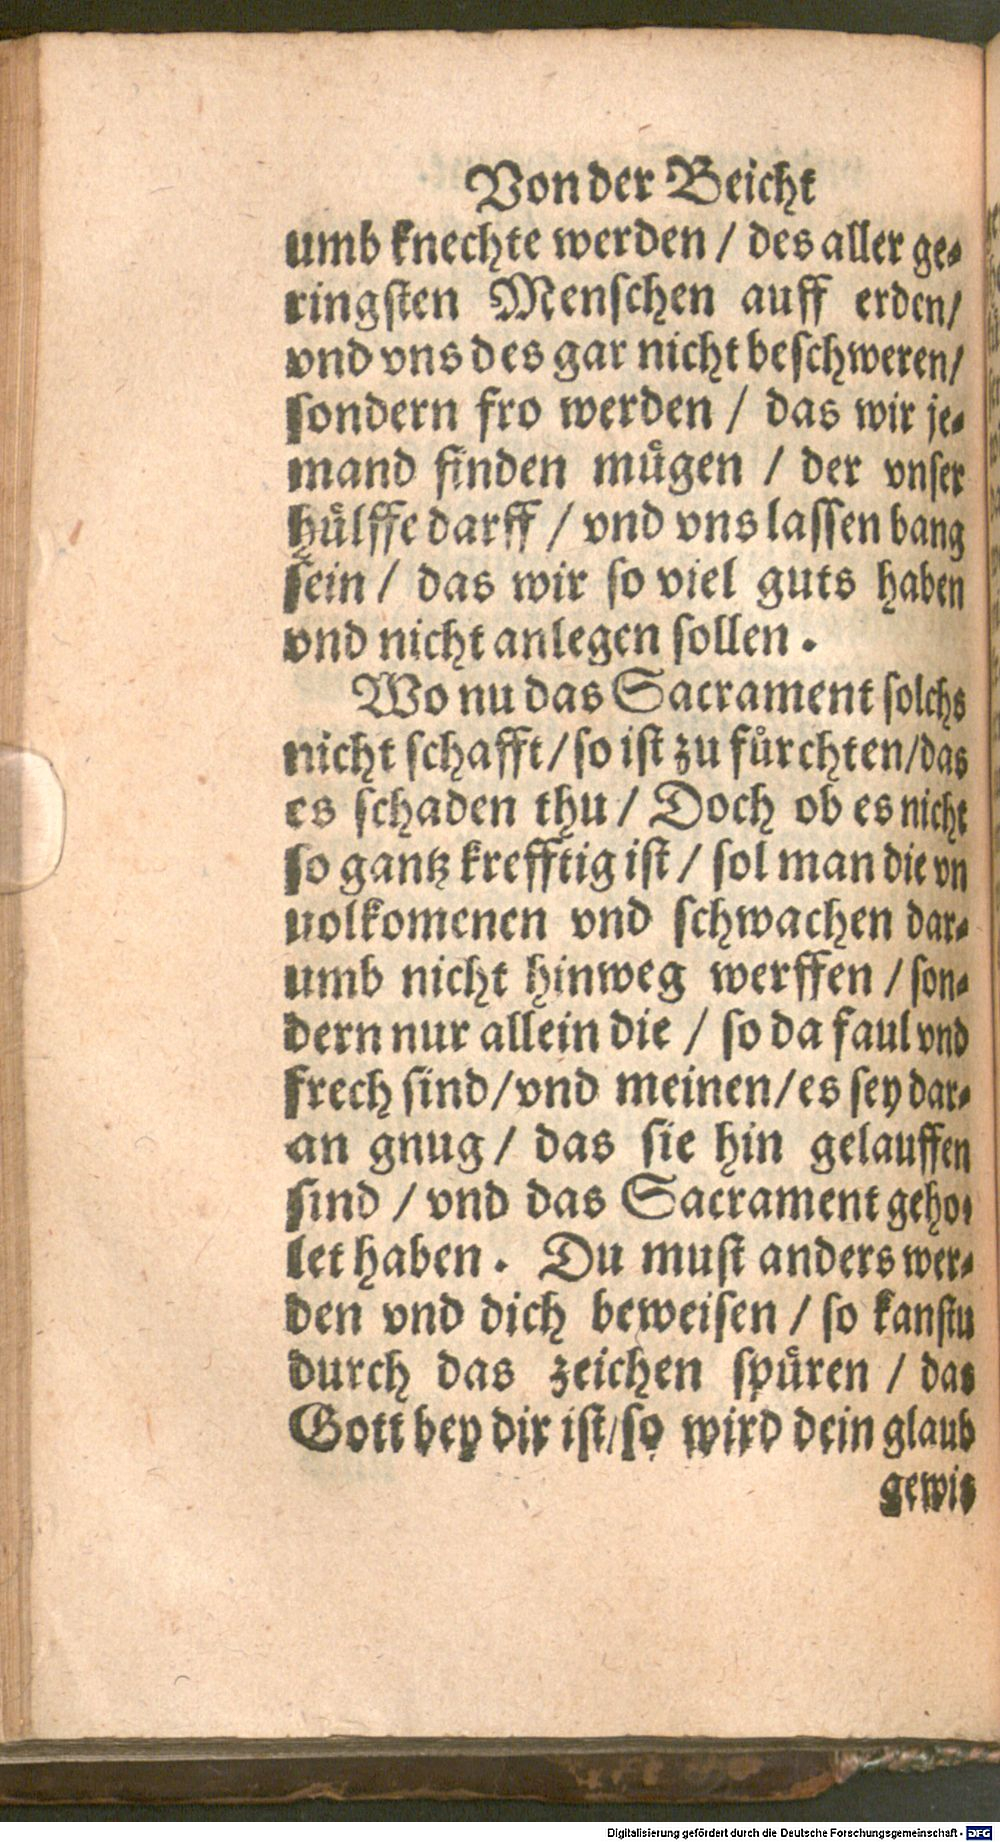 Von der Beicht
umb knechte werden / des aller ge-
ringsten Menschen auff erden/
vnd vns des gar nicht beschweren/
sondern fro werden / das wir je-
mand finden muͤgen / der vnser
huͤlffe darff / vnd vns lassen bang
sein / das wir so viel guts haben
vnd nicht anlegen sollen.
Wo nu das Sacrament solchs
nicht schafft/ so ist zu fuͤrchten/das
es schaden thu / Doch ob es nicht
so gantz krefftig ist / sol man die vn
uolkomenen vnd schwachen dar-
umb nicht hinweg werffen / son-
dern nur allein die / so da faul vnd
frech sind/vnd meinen/es sey dar-
an gnug / das sie hin gelauffen
sind / vnd das Sacrament geho-
let haben. Du must anders wer-
den vnd dich beweisen / so kanstu
durch das zeichen spuͤren / das
Gott bey dir ist/so wird dein glaub
gewis
Digitalisierung gefördert durch die Deutsche Forschungsgemeinschaft - DFG